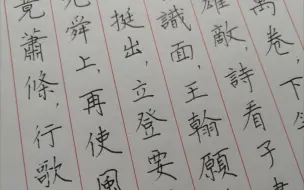 萬卷,下
雄敵,詩看子
識面,王翰願
挺出,立登要
堯舜上,再使風
竟蕭條,行歌